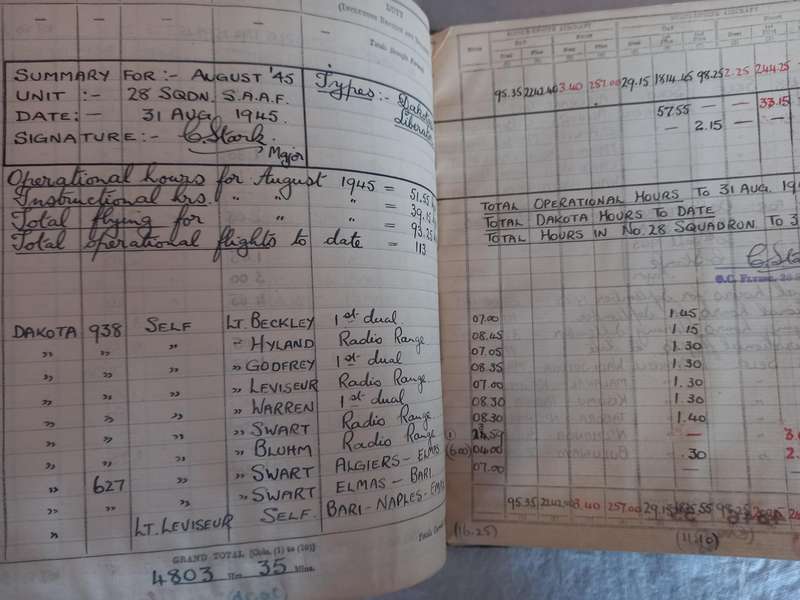 DUTY
SUMMARY FOR:- AUGUST '45
UNIT :- 28 SQDN. S.A.A.F.
DATE:- 31 AUG. 1945.
SIGNATURE:- C. Stark.
Major
Types:- Dakota
Liberator
Operational hours for August 1945 = 51.55
Instructional hrs. " " " = 39.15
Total flying for " " = 93.25
Total operational flights to date = 113
DAKOTA 938 SELF LT. BECKLEY 1st dual
" " " " HYLAND Radio Range
" " " " GODFREY 1st dual
" " " " LEVISEUR Radio Range
" " " " WARREN 1st dual
" " " " SWART Radio Range
" " " " BLUHM Radio Range
" 627 " " SWART ALGIERS - ELMAS
" " " " SWART ELMAS - BARI
" LT. LEVISEUR SELF. BARI-NAPLES-
GRAND TOTAL [Cols. (1) to (10)]
4803 Hrs. 35 Mins.
95.35 2242.40 3.40 257.00 29.15 1814.15 98.25 2.25 244.25
57.55 — — 33.15
— 2.15 — —
TOTAL OPERATIONAL HOURS TO 31 AUG.
TOTAL DAKOTA HOURS TO DATE
TOTAL HOURS IN NO. 28 SQUADRON TO
C. Stark
07.00 1.45
08.45 1.15
07.05 1.30
08.35 1.30
07.00 1.30
08.30 1.30
08.30 1.40
—
(6.00) 04.00 .30
07.00 —
95.35 2242.40 3.40 257.00 29.15
(16.25) (11.10)